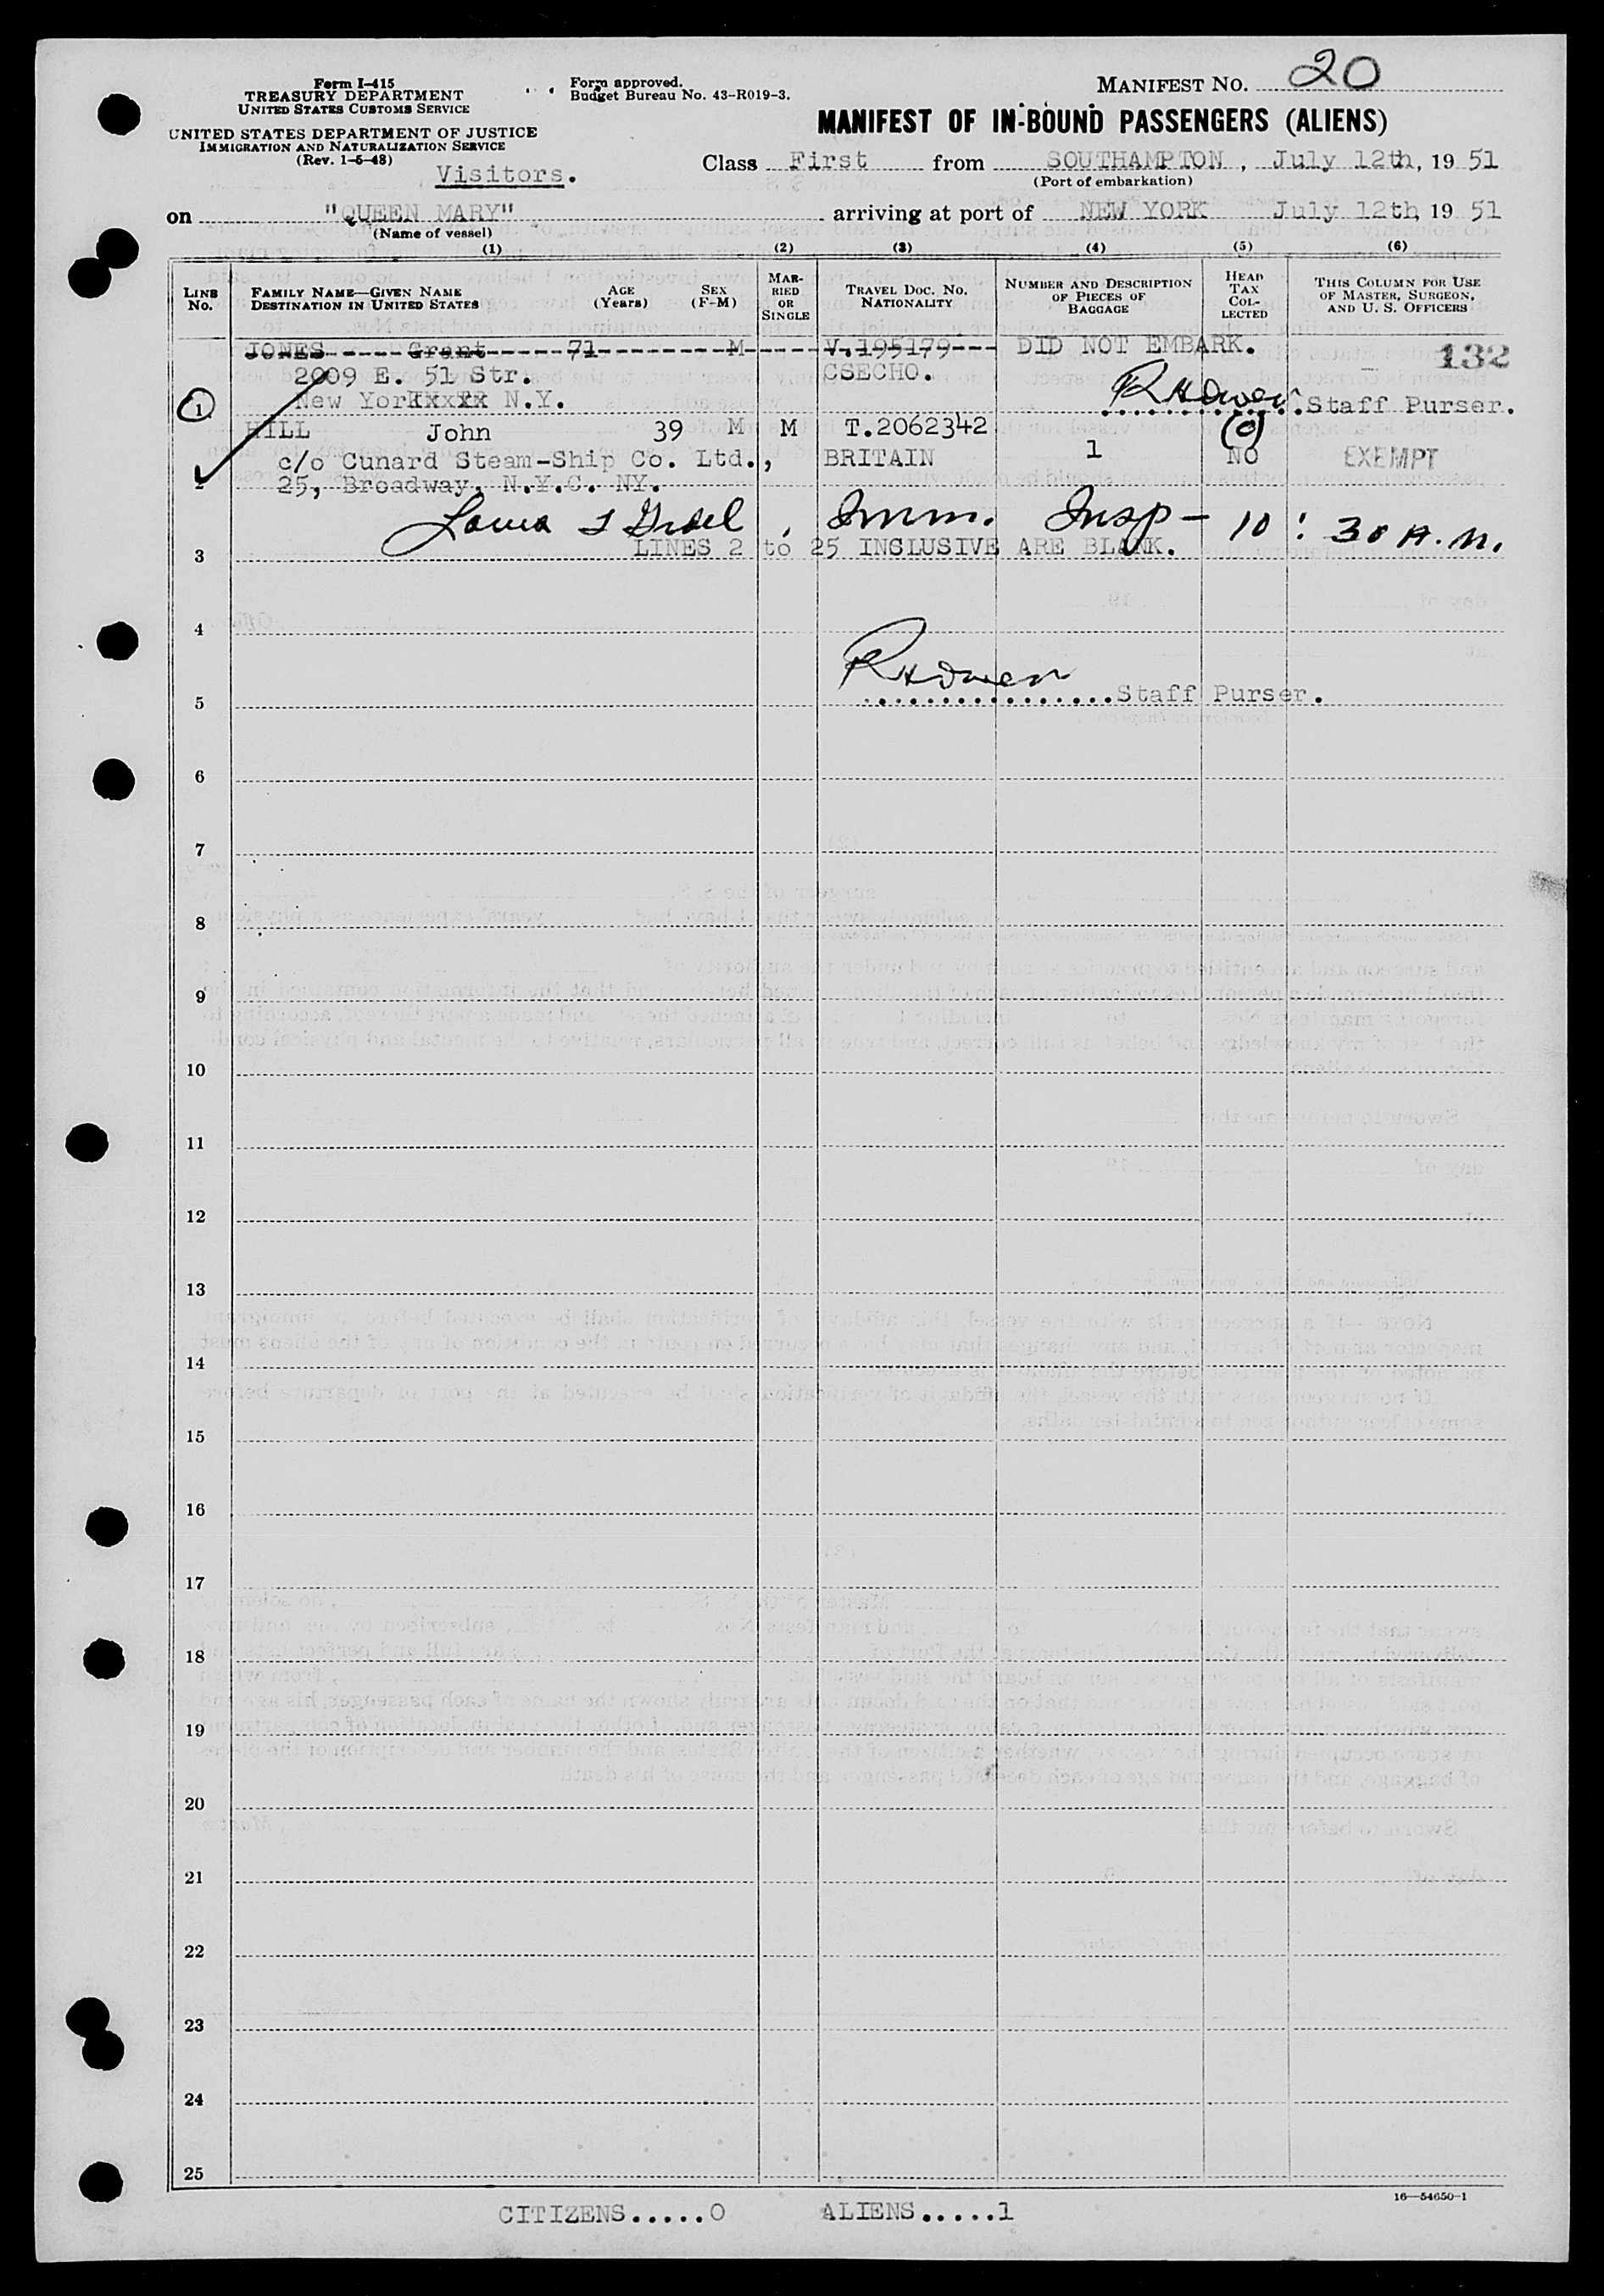 Form I-415
TREASURY DEPARTMENT
UNITED STATES CUSTOMS SERVICE
UNITED STATES DEPARTMENT OF JUSTICE
IMMIGRATION AND NATURALIZATION SERVICE
(Rev. 1-5-48)
Form approved.
Budget Bureau No. 43-R019-3.
MANIFEST NO. 20
MANIFEST OF IN-BOUND PASSENGERS (ALIENS)
Visitors.
Class First from SOUTHAMPTON, July 12th, 19 51
(Port of embarkation)
on "QUEEN MARY" arriving at port of NEW YORK July 12th, 19 51
(Name of vessel)
(1) (2) (3) (4) (5) (6)
LINE No. FAMILY NAME—GIVEN NAME DESTINATION IN UNITED STATES AGE (Years) SEX (F-M) MARRIED OR SINGLE TRAVEL DOC. NO. NATIONALITY NUMBER AND DESCRIPTION OF PIECES OF BAGGAGE HEAD TAX COLLECTED THIS COLUMN FOR USE OF MASTER, SURGEON, AND U. S. OFFICERS
JONES Grant 71 M V.195179 DID NOT EMBARK. 132
2009 E. 51 Str. CSECHO.
New York N.Y. Staff Purser.
1
HILL John 39 M M T.2062342 (0)
c/o Cunard Steam-Ship Co. Ltd., BRITAIN 1 NO EXEMPT
2 25, Broadway, N.Y.C. NY.
Imm. Insp - 10:30 A.M.
3 LINES 2 to 25 INCLUSIVE ARE BLANK.
4
5 Staff Purser.
6
7
8
9
10
11
12
13
14
15
16
17
18
19
20
21
22
23
24
25
16—54650-1
CITIZENS.....0 ALIENS.....1